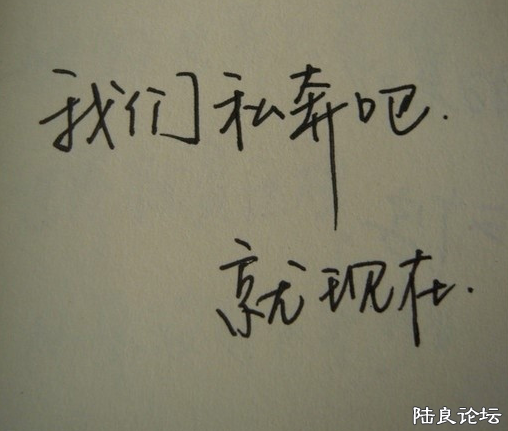 我们私奔吧.
就现在.
陆良论坛